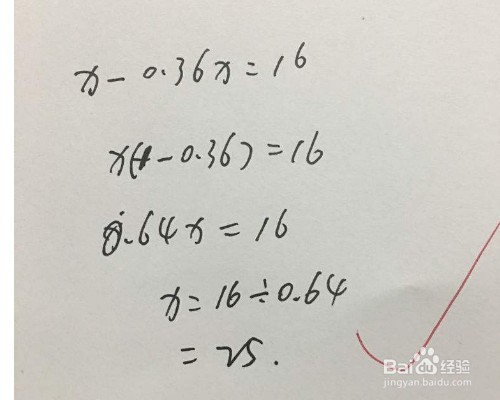 x - 0.36x = 16
x(1 - 0.36) = 16
0.64x = 16
x = 16 ÷ 0.64
= 25.
Baidu 经验
jingyan.baidu.com